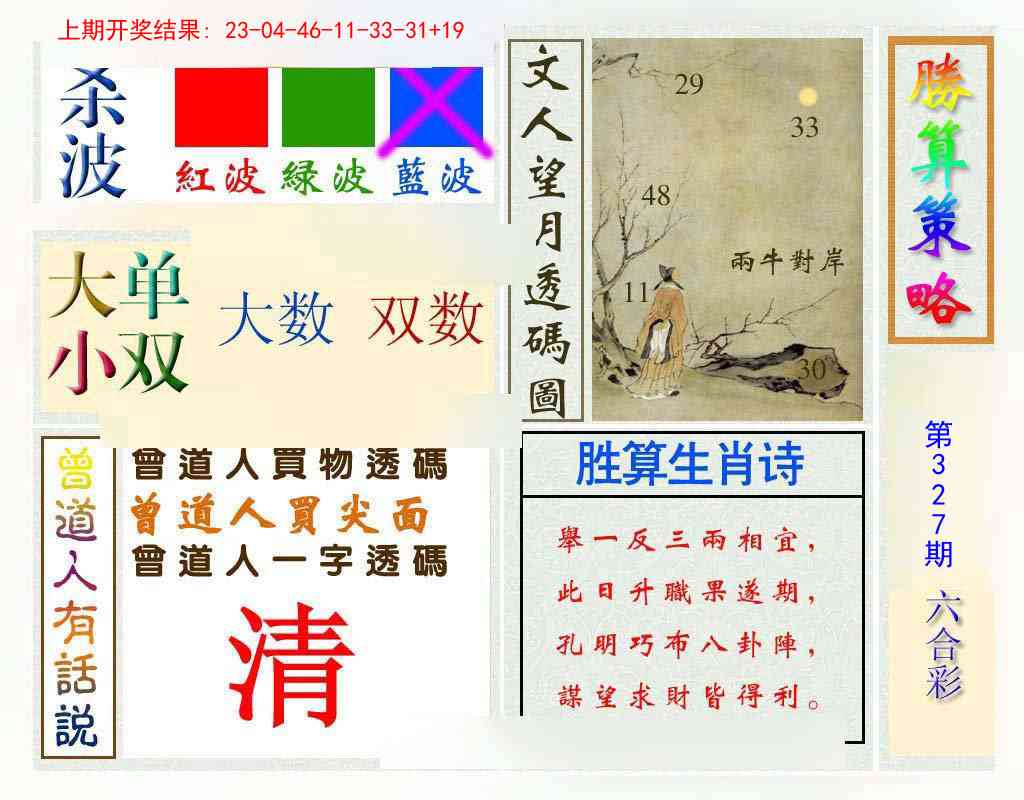 上期开奖结果: 23-04-46-11-33-31+19
杀波
紅波 緑波 藍波
大单
小双
大数 双数
文人望月透碼圖
29
33
48
兩牛對岸
11
30
勝算策略
第327期
六合彩
曾道人有話説
曾道人買物透碼
曾道人買尖面
曾道人一字透碼
清
胜算生肖诗
舉一反三兩相宜,
此日升職果遂期,
孔明巧布八卦陣,
謀望求財皆得利。